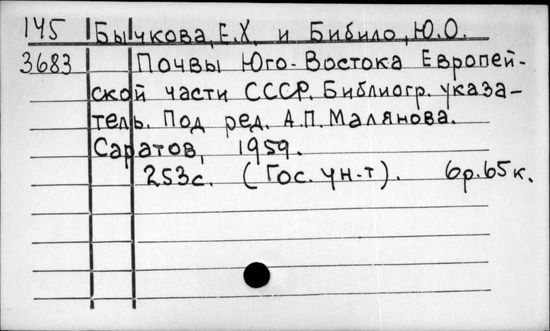 145 Бычкова, Е.Х. и Бибило, Ю.О.
3683 Почвы Юго-Востока Европей-
ской части СССР. Библиогр. указа-
тель. Под ред. А.П. Малянова.
Саратов, 1959.
253с. (Гос. ун-т). 6р.65к.